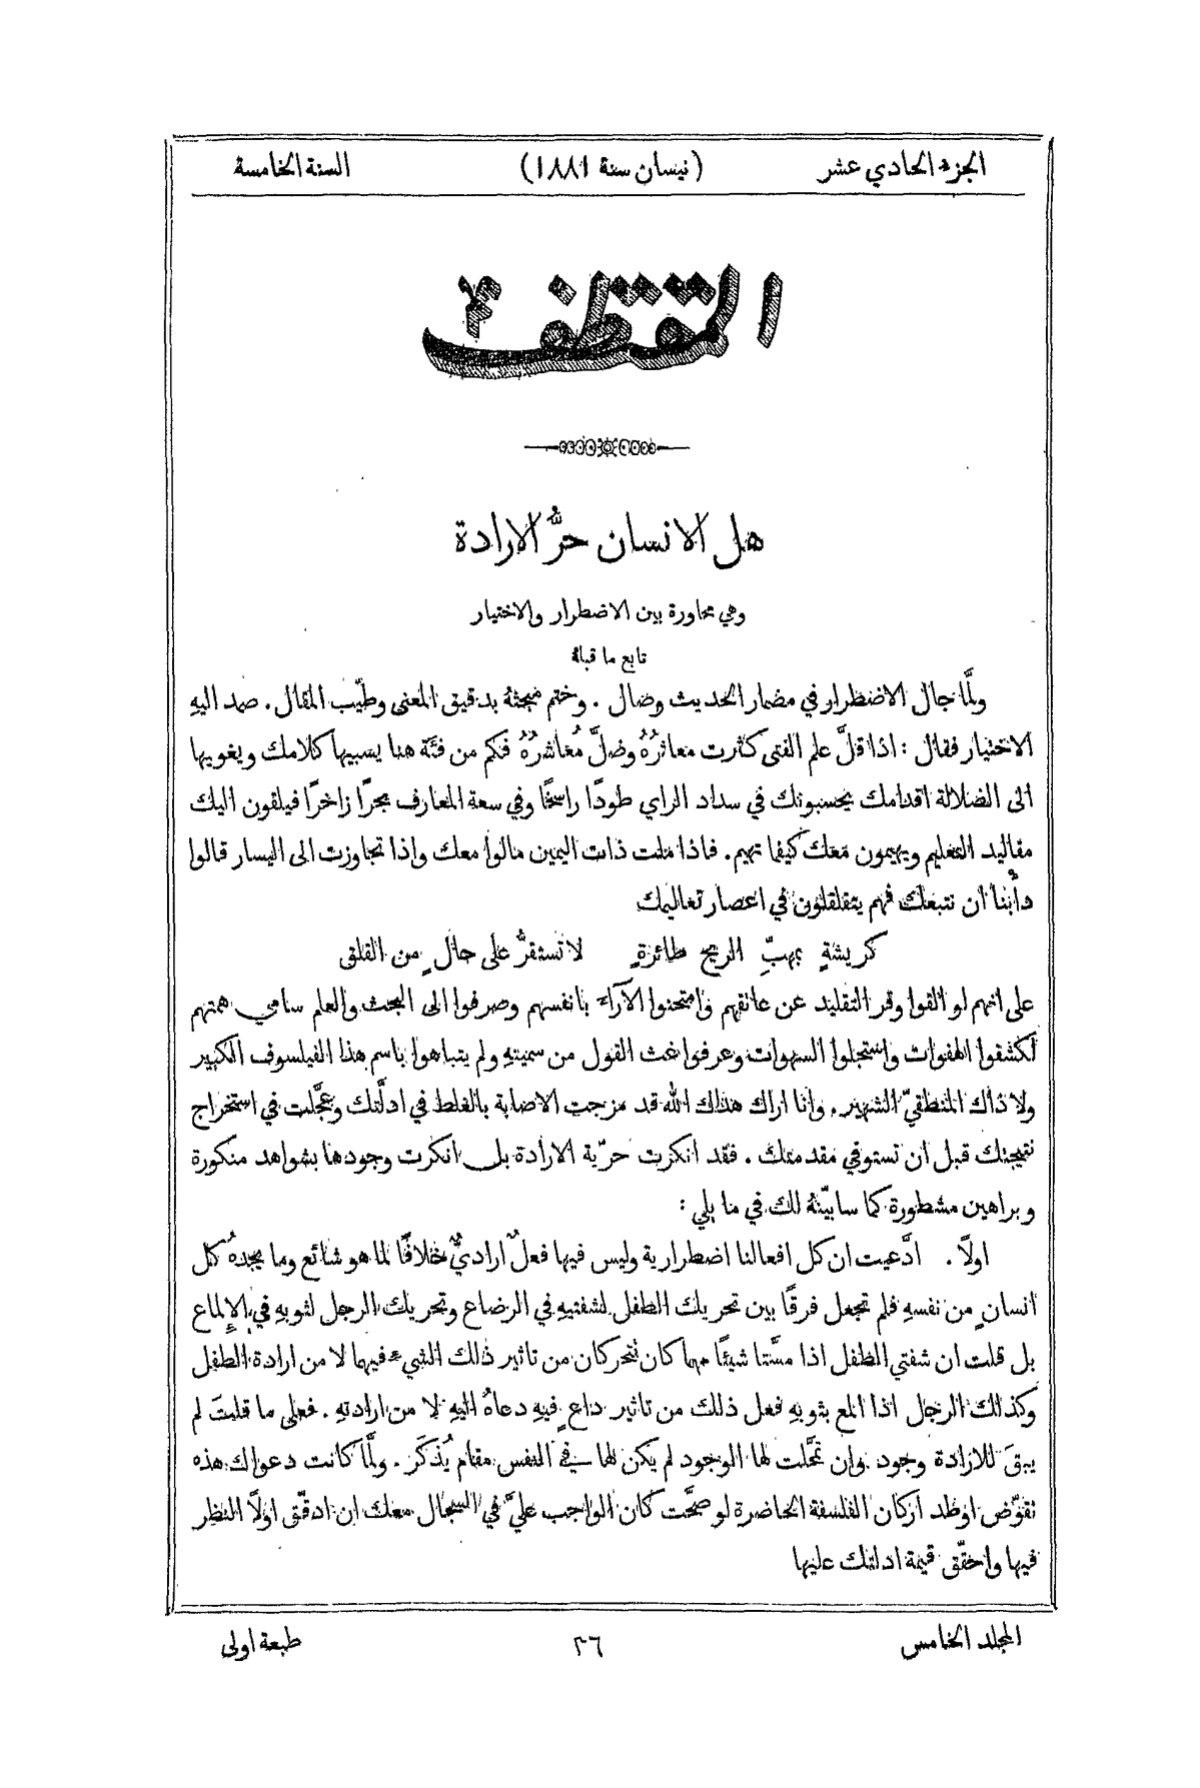 الجزء الحادي عشر (نيسان سنة ١٨٨١) السنة الخامسة
المقتطف
هل الانسان حرُّ الارادة
وهي محاورة بين الاضطرار والاختيار
تابع ما قبلهُ
ولمَّا جال الاضطرار في مضمار الحديث وصال . وختم مبحثهُ بدقيق المعنى وطيّب المقال . صمد اليهِ
الاختيار فقال : اذا قلَّ علم الفتى كثرت معاثرُهُ وضلَّ مُعاشرُهُ فكم من فئَة هنا يسبيها كلامك ويغويها
الى الضلالة اقدامك يحسبونك في سداد الراي طودًا راسخًا وفي سعة المعارف بحرًا زاخرًا فيلقون اليك
مقاليد التعليم ويهيمون معك كيفما تهيم . فاذا ملت ذات اليمين مالوا معك واذا تجاوزت الى اليسار قالوا
دأْبنا ان نتبعك فهم يتقلقلون في اعصار تعاليمك
كريشةٍ بمهبِّ الريح طائرةٍ لا تستقرُّ على حالٍ من القلقِ
على انهم لو القوا وقر التقليد عن عاتقهم وامتحنوا الآراء بانفسهم وصرفوا الى البحث والعلم سامي همتهم
لكشفوا الهفوات واستجلوا السهوات وعرفوا غث القول من سمينهِ ولم يتباهوا باسم هذا الفيلسوف الكبير
ولا ذاك المنطقيّ الشهير . وانا اراك هداك الله قد مزجت الاصابة بالغلط في ادلَّتك وعجَّلت في استخراج
نتيجتك قبل ان تستوفي مقدمتك . فقد انكرت حرّية الارادة بل انكرت وجودها بشواهد منكورة
وبراهين مشطورة كما سابيّنهُ لك في ما يلي :
اولًا . ادَّعيت ان كل افعالنا اضطرارية وليس فيها فعلٌ اراديٌّ خلافًا لما هو شائع وما يجدهُ كل
انسانٍ من نفسهِ فلم تجعل فرقًا بين تحريك الطفل لشفتيهِ في الرضاع وتحريك الرجل لثوبهِ في الإِلماع
بل قلت ان شفتي الطفل اذا مسَّتا شيئًا مهما كان تتحركان من تاثير ذلك الشيء فيها لا من ارادة الطفل
وكذلك الرجل اذا المع بثوبهِ فعل ذلك من تاثير داعٍ فيهِ دعاهُ اليهِ لا من ارادتهِ . فعلى ما قلتَ لم
يبقَ للارادة وجود وان تمحَّلت لها الوجود لم يكن لها في النفس مقام يُذكَر . ولمَّا كانت دعواك هذه
تقوّض اوطد اركان الفلسفة الحاضرة لو صحَّت كان الواجب عليَّ في السجال معك ان ادقّق اولًا النظر
فيها واحقّق قيمة ادلتك عليها
المجلد الخامس ٢٦ طبعة اولى